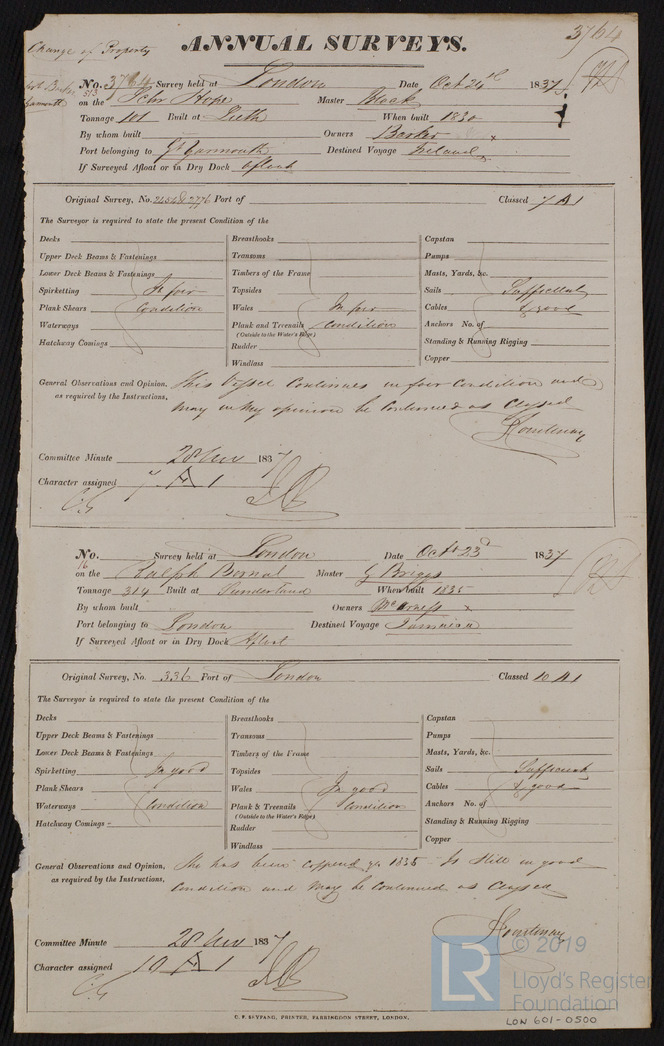 Change of Property
3764
ANNUAL SURVEYS.
No. 3764 Survey held at London Date Oct 24th 1837
Yarmouth
513
on the Schr Hope Master Black
Tonnage 101 Built at Leith When built 1830
By whom built Owners Barker x
Port belonging to Gt Yarmouth Destined Voyage Ireland
If Surveyed Afloat or in Dry Dock Afloat
Original Survey, No. 2454 & 2776 Port of Classed 7 A 1
The Surveyor is required to state the present Condition of the
Decks Breasthooks Capstan
Upper Deck Beams & Fastenings Transoms Pumps
Lower Deck Beams & Fastenings Timbers of the Frame Masts, Yards, &c.
Spirketting In fair Topsides Sails Sufficient
Plank Shears Condition Wales In fair Cables & good
Waterways Plank and Treenails Condition Anchors No. of
(Outside to the Water's Edge)
Hatchway Comings Rudder Standing & Running Rigging
Windlass Copper
General Observations and Opinion, This Vessel Continues in fair Condition and
as required by the Instructions. may in my opinion be Continued as Classed
Courtenay
Committee Minute 28 Nov 1837
Character assigned 7 A 1
No. Survey held at London Date Octr 23d 1837
16
on the Ralph Bernal Master G Briggs
Tonnage 314 Built at Sunderland When built 1835
By whom built Owners x
Port belonging to London Destined Voyage Jamaica
If Surveyed Afloat or in Dry Dock Afloat
Original Survey, No. 336 Port of London Classed 10 A 1
The Surveyor is required to state the present Condition of the
Decks Breasthooks Capstan
Upper Deck Beams & Fastenings Transoms Pumps
Lower Deck Beams & Fastenings Timbers of the Frame Masts, Yards, &c.
Spirketting In good Topsides Sails Sufficient
Plank Shears Wales In good Cables & good
Waterways Condition Plank & Treenails Condition Anchors No. of
(Outside to the Water's Edge)
Hatchway Comings Rudder Standing & Running Rigging
Windlass Copper
General Observations and Opinion, She has been Coppered 1835 Is Still in good
as required by the Instructions. Condition and may be Continued as Classed
Courtenay
Committee Minute 28 Nov 1837
Character assigned 10 A 1
C. F. SEYFANG, PRINTER, FARRINGDON STREET, LONDON.
LR © 2019
Lloyd's Register
Foundation
LON 601-0500